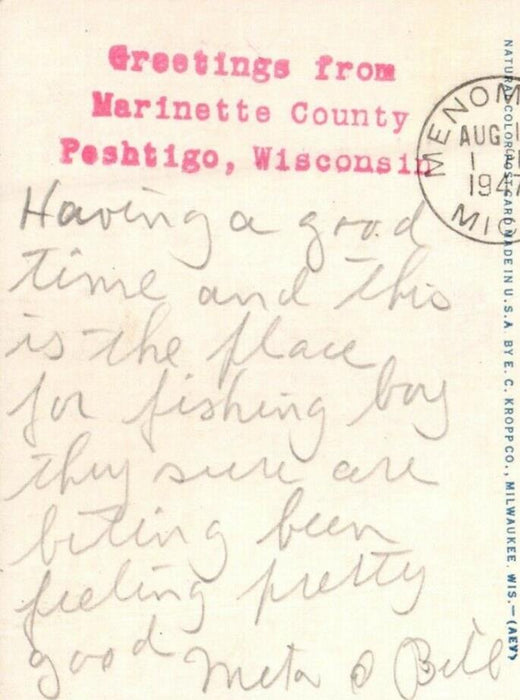 Greetings from
Marinette County
Peshtigo, Wisconsin
MENOM
AUG
1
194
MIC
Having a good
time and this
is the place
for fishing boy
they sure are
biting been
feeling pretty
good Meta & Bill
NATURAL COLOR POST CARD MADE IN U.S.A. BY E. C. KROPP CO., MILWAUKEE, WIS.—(AEV)